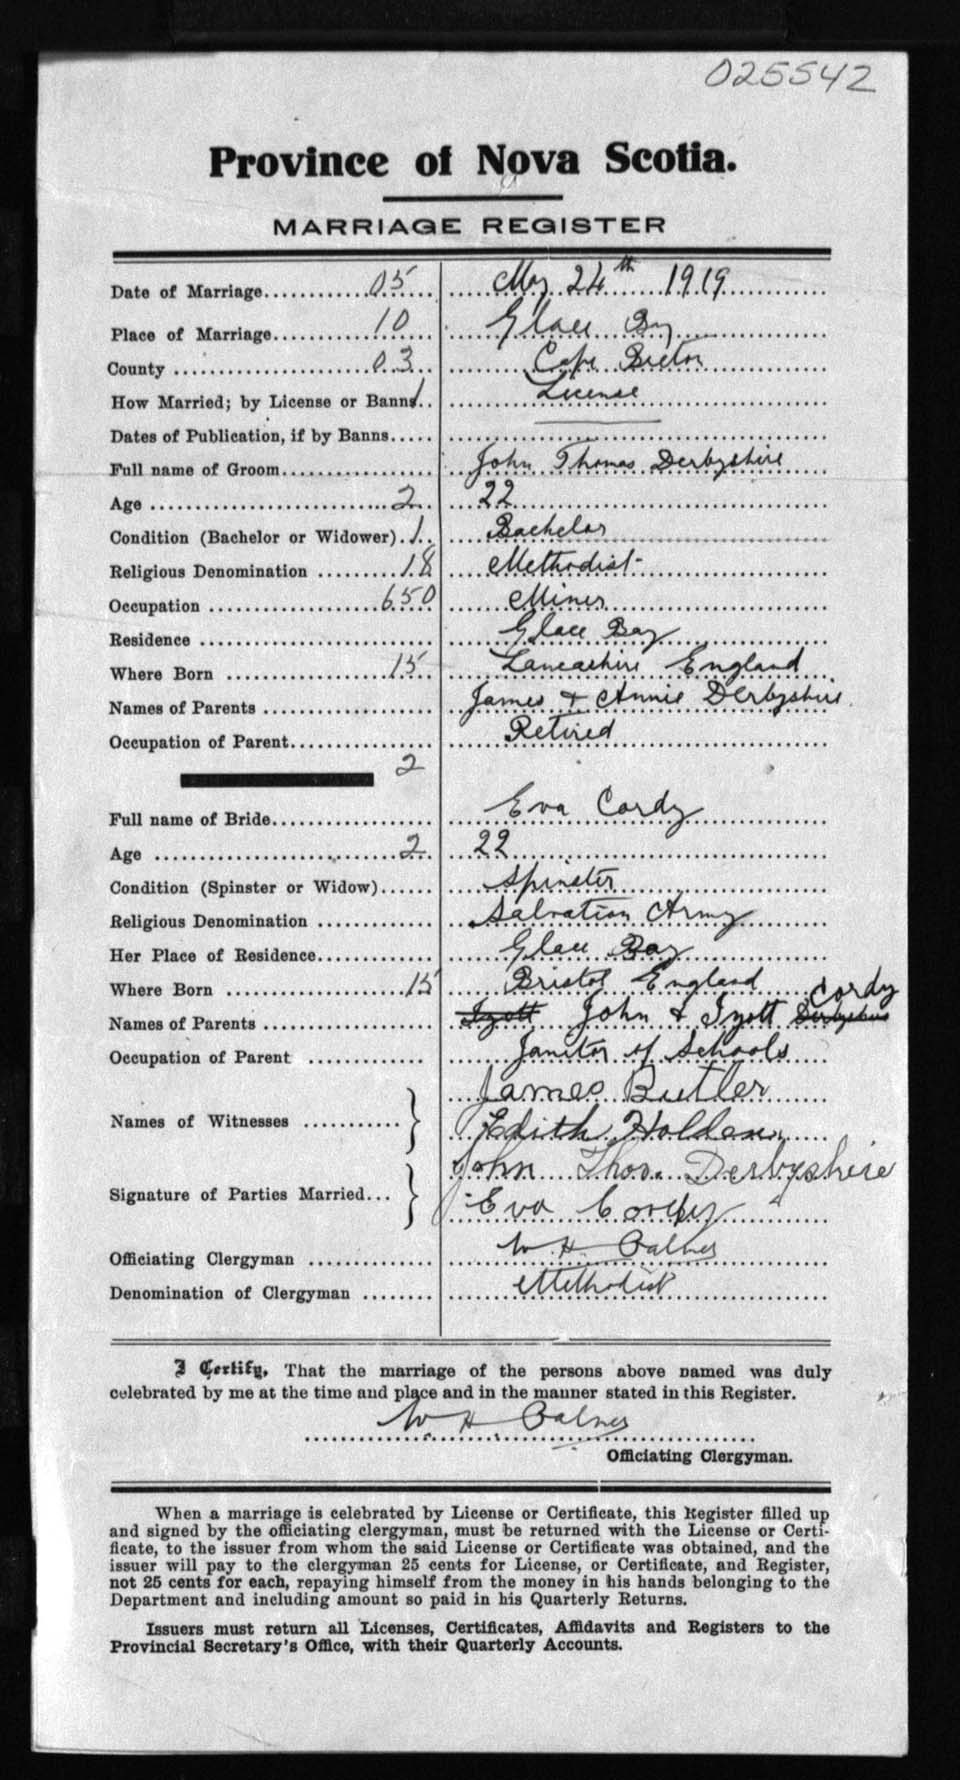 025542
Province of Nova Scotia.
MARRIAGE REGISTER
Date of Marriage 05 May 24th 1919
Place of Marriage 10 Glace Bay
County 03 Cape Breton
How Married; by License or Banns 1 License
Dates of Publication, if by Banns
Full name of Groom John Thomas Derbyshire
Age 2 22
Condition (Bachelor or Widower) 1 Bachelor
Religious Denomination 18 Methodist
Occupation 650 Miner
Residence Glace Bay
Where Born 15 Lancashire England
Names of Parents James & Annie Derbyshire
Occupation of Parent Retired
2
Full name of Bride Eva Cordy
Age 2 22
Condition (Spinster or Widow) Spinster
Religious Denomination Salvation Army
Her Place of Residence Glace Bay
Where Born 15 Bristol England
Names of Parents John & Cordy Derbyshire
Occupation of Parent Janitor of Schools
Names of Witnesses James Butler
Edith Holden
Signature of Parties Married John Thos. Derbyshire
Eva Cordy
Officiating Clergyman W. H.
Denomination of Clergyman Methodist
I Certify, That the marriage of the persons above named was duly
celebrated by me at the time and place and in the manner stated in this Register.
W H
Officiating Clergyman.
When a marriage is celebrated by License or Certificate, this Register filled up
and signed by the officiating clergyman, must be returned with the License or Certi-
ficate, to the issuer from whom the said License or Certificate was obtained, and the
issuer will pay to the clergyman 25 cents for License, or Certificate, and Register,
not 25 cents for each, repaying himself from the money in his hands belonging to the
Department and including amount so paid in his Quarterly Returns.
Issuers must return all Licenses, Certificates, Affidavits and Registers to the
Provincial Secretary's Office, with their Quarterly Accounts.